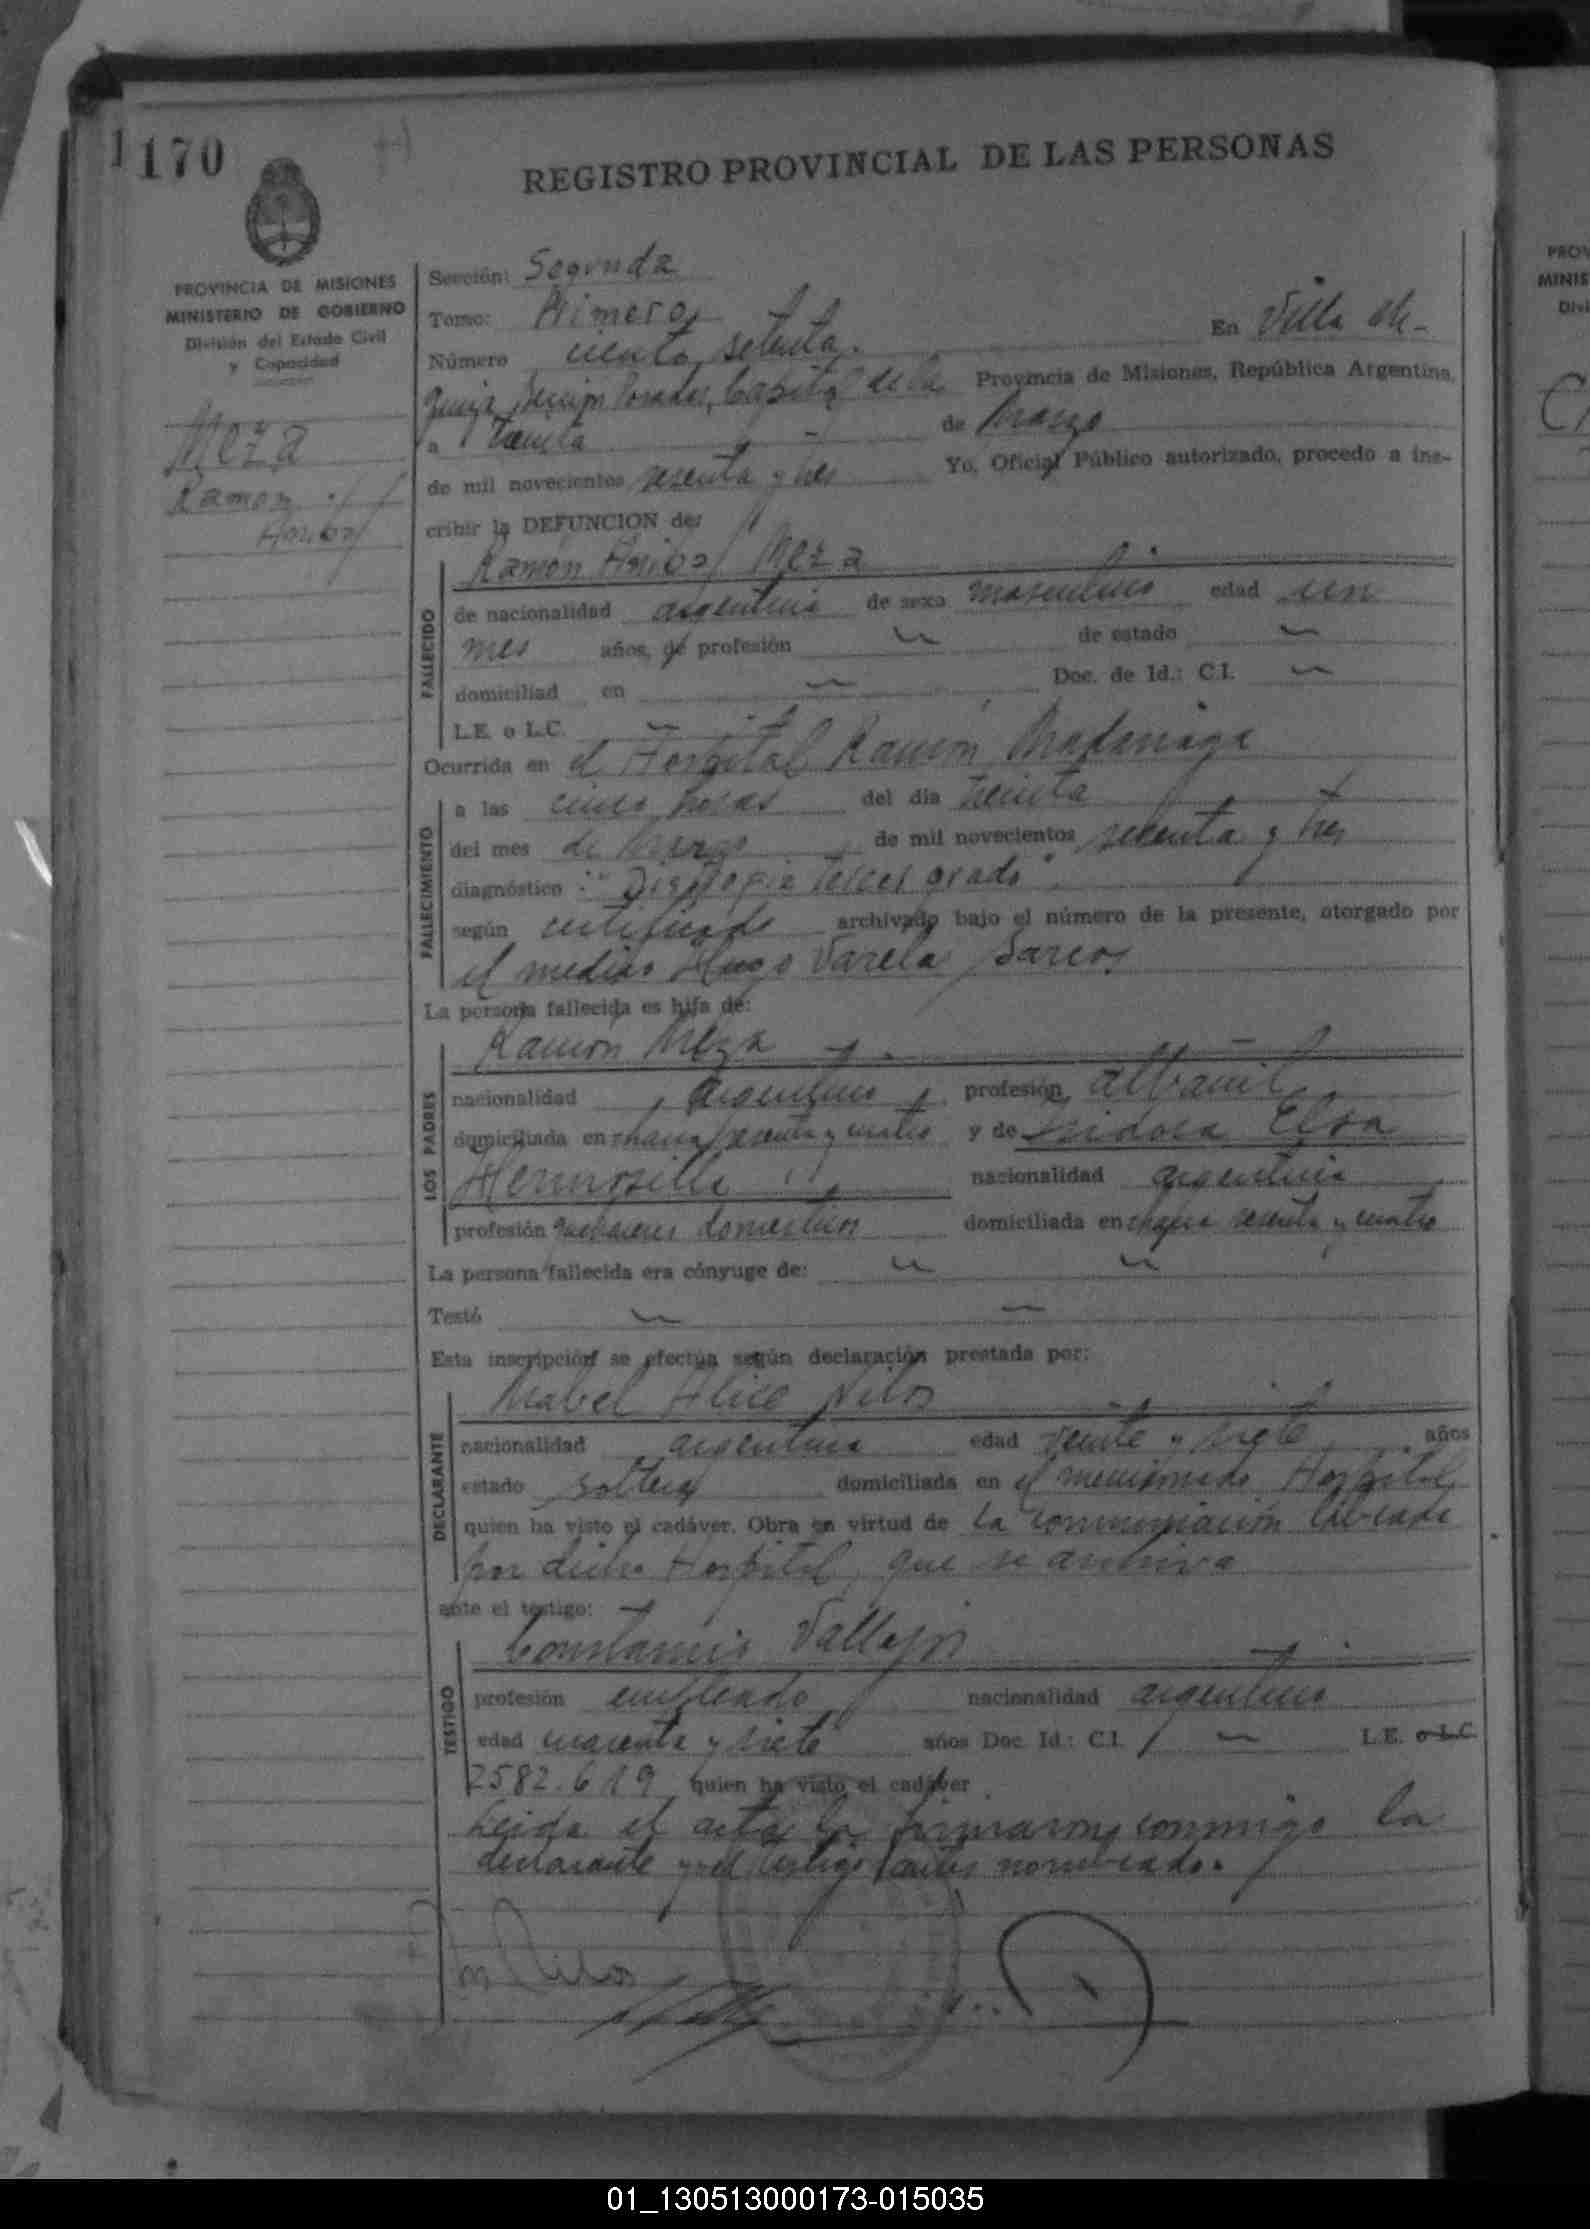 170
REGISTRO PROVINCIAL DE LAS PERSONAS
PROVINCIA DE MISIONES
MINISTERIO DE GOBIERNO
División del Estado Civil
y Capacidad
Meza
Ramon
Anibal
Sección: Segunda
Tomo: Primero
Número ciento setenta. En Villa
Posadas, Capital de la Provincia de Misiones, República Argentina,
a treinta de Marzo
de mil novecientos sesenta y tres Yo, Oficial Público autorizado, procedo a ins-
cribir la DEFUNCION de:
Ramón Anibal Meza
FALLECIDO
de nacionalidad argentina de sexo masculino edad un
mes años, de profesión de estado
domiciliad en Doc. de Id.: C.I.
L.E. o L.C.
Ocurrida en el Hospital Ramón Madariaga
FALLECIMIENTO
a las cinco horas del día treinta
del mes de Marzo de mil novecientos sesenta y tres
diagnóstico: "Distrofia tercer grado"
según certificado archivado bajo el número de la presente, otorgado por
el medico Hugo Varela
La persona fallecida es hija de:
Ramón Meza
LOS PADRES
nacionalidad argentino profesión albañil
domiciliada en chacra sesenta y cuatro y de Isidora Elsa
Hermosilla nacionalidad argentina
profesión quehaceres domesticos domiciliada en chacra sesenta y cuatro
La persona fallecida era cónyuge de:
Testó
Esta inscripción se efectúa según declaración prestada por:
Mabel Alice
DECLARANTE
nacionalidad argentina edad veinte y siete años
estado soltera domiciliada en el mencionado Hospital
quien ha visto el cadáver. Obra en virtud de la comunicación librada
por dicho Hospital, que se archiva
ante el testigo:
Constancio Vallejos
TESTIGO
profesión empleado nacionalidad argentino
edad cuarenta y siete años Doc. Id.: C.I. L.E. o L.C.
2582.619 quien ha visto el cadáver
Leida el acta la firmaron conmigo la
declarante y el testigo antes nombrado.
PROV
MINIS
Divi
01_130513000173-015035